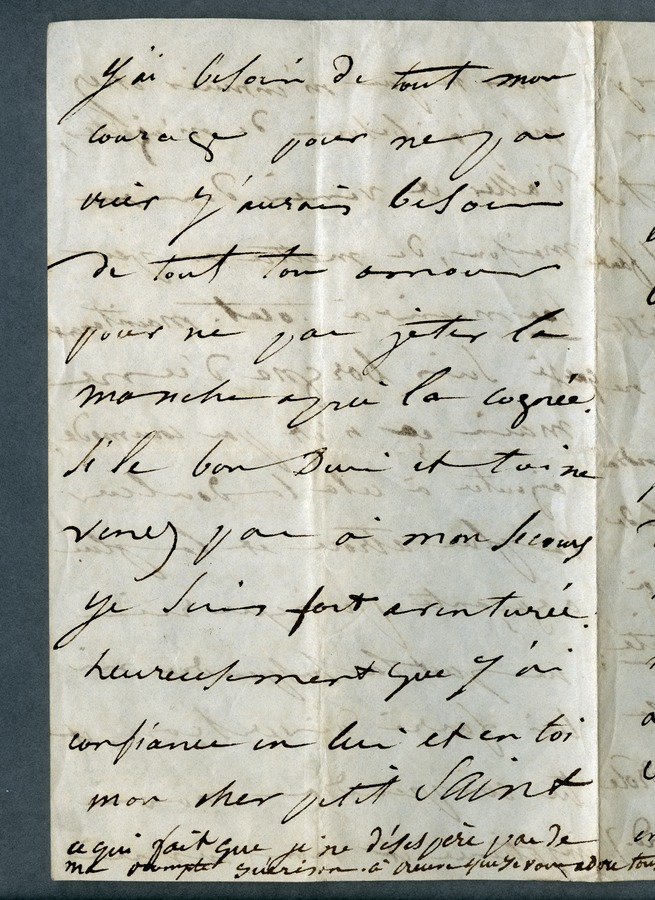 J'ai besoin de tout mon
courage pour ne pas
crier j'aurais besoin
de tout ton amour
pour ne pas jeter le
manche après la cognée.
Si le bon Dieu et toi ne
venez pas à mon secours
je suis fort aventurée.
heureusement que j'ai
confiance en lui et en toi
mon cher petit Saint
ce qui fait que je ne désespère pas de
ma prompte guérison. à preuve que je vous adore